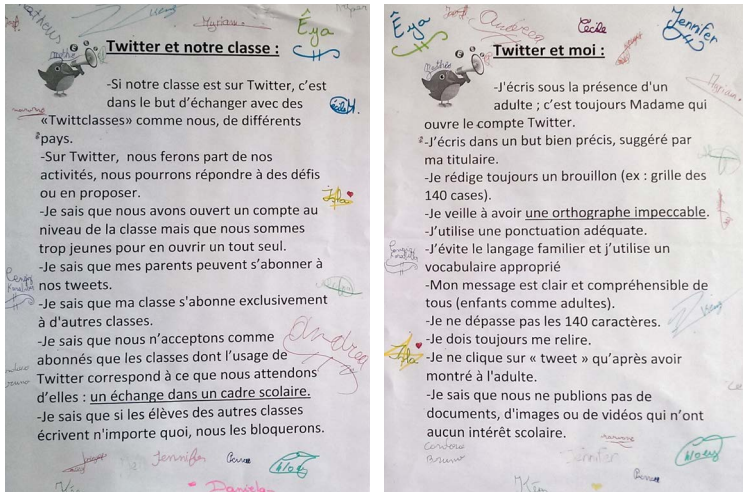 Myriam
Êya
Twitter et notre classe :
-Si notre classe est sur Twitter, c'est
dans le but d'échanger avec des
«Twittclasses» comme nous, de différents
pays.
-Sur Twitter, nous ferons part de nos
activités, nous pourrons répondre à des défis
ou en proposer.
-Je sais que nous avons ouvert un compte au
niveau de la classe mais que nous sommes
trop jeunes pour en ouvrir un tout seul.
-Je sais que mes parents peuvent s'abonner à
nos tweets.
-Je sais que ma classe s'abonne exclusivement
à d'autres classes.
-Je sais que nous n'acceptons comme
abonnés que les classes dont l'usage de
Twitter correspond à ce que nous attendons
d'elles : un échange dans un cadre scolaire.
-Je sais que si les élèves des autres classes
écrivent n'importe quoi, nous les bloquerons.
Andrea
Jennifer
Pierre
Chloey
Daniela
Êya
Andrea
Cécile
Jennifer
Twitter et moi :
-J'écris sous la présence d'un
adulte ; c'est toujours Madame qui
ouvre le compte Twitter.
-J'écris dans un but bien précis, suggéré par
ma titulaire.
-Je rédige toujours un brouillon (ex : grille des
140 cases).
-Je veille à avoir une orthographe impeccable.
-J'utilise une ponctuation adéquate.
-J'évite le langage familier et j'utilise un
vocabulaire approprié
-Mon message est clair et compréhensible de
tous (enfants comme adultes).
-Je ne dépasse pas les 140 caractères.
-Je dois toujours me relire.
-Je ne clique sur « tweet » qu'après avoir
montré à l'adulte.
-Je sais que nous ne publions pas de
documents, d'images ou de vidéos qui n'ont
aucun intérêt scolaire.
Jennifer
Pierre
Chloey